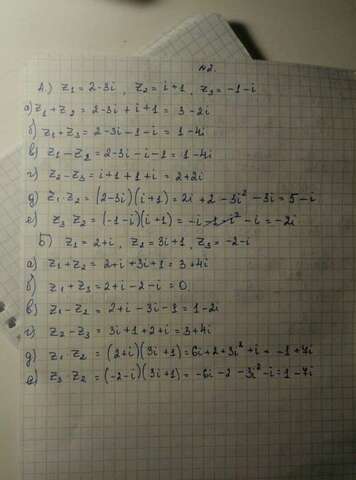 №2.
А) z₁ = 2-3i, z₂ = i+1, z₃ = -1-i
а) z₁+z₂ = 2-3i+i+1 = 3-2i
б) z₁+z₃ = 2-3i-1-i = 1-4i
в) z₁-z₂ = 2-3i-i-1 = 1-4i
г) z₂-z₃ = i+1+1+i = 2+2i
д) z₁·z₂ = (2-3i)(i+1) = 2i+2-3i²-3i = 5-i
е) z₃·z₂ = (-1-i)(i+1) = -i-1-i²-i = -2i
Б) z₁ = 2+i, z₂ = 3i+1, z₃ = -2-i
а) z₁+z₂ = 2+i+3i+1 = 3+4i
б) z₁+z₃ = 2+i-2-i = 0
в) z₁-z₂ = 2+i-3i-1 = 1-2i
г) z₂-z₃ = 3i+1+2+i = 3+4i
д) z₁·z₂ = (2+i)(3i+1) = 6i+2+3i²+i = -1+7i
е) z₃·z₂ = (-2-i)(3i+1) = -6i-2-3i²-i = 1-7i